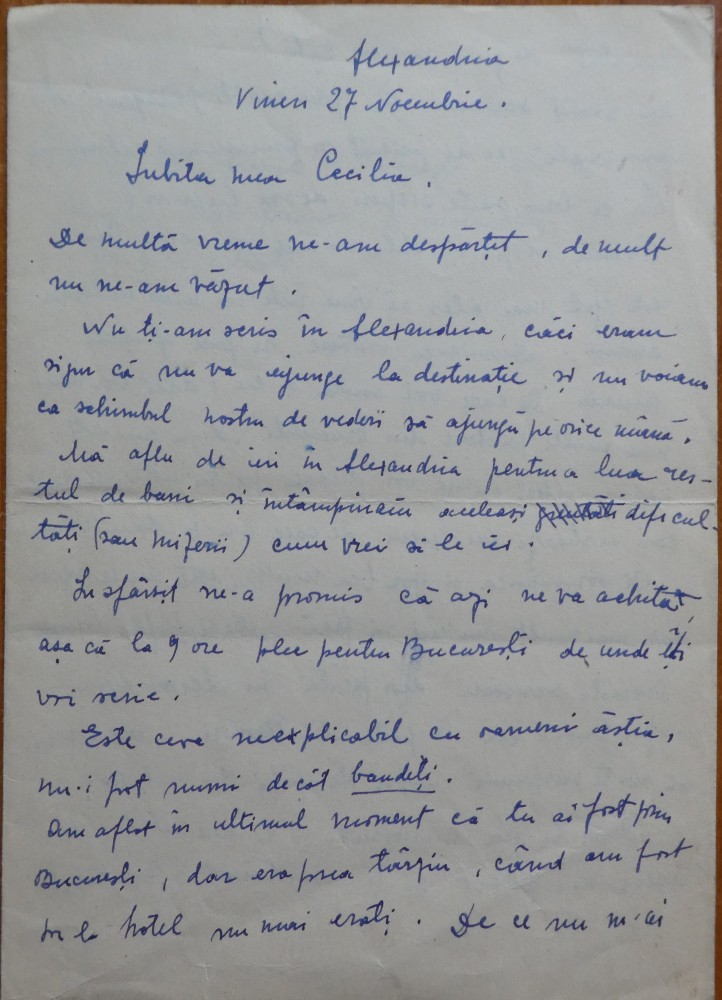 Alexandria
Vineri 27 Noembrie.
Iubita mea Cecilia,
De multă vreme ne-am despărțit, de mult
nu ne-am văzut.
Nu ți-am scris în Alexandria, căci eram
sigur că nu va ajunge la destinație și nu voiam
ca schimbul nostru de vederi să ajungă pe orice mână.
Mă aflu de ieri în Alexandria pentru a lua res-
tul de bani și întâmpinăm aceleași dificul-
tăți (sau mizerii) cum vrei să le iei.
In sfârșit ne-a promis că azi ne va achita,
așa că la 9 ore plec pentru București de unde îți
voi scrie.
Este ceva inexplicabil cu oamenii ăștia,
nu-i pot numi decât bandiți.
Am aflat în ultimul moment că tu ai fost prin
București, dar era prea târziu, când am fost
eu la hotel nu mai erați. De ce nu m-ai